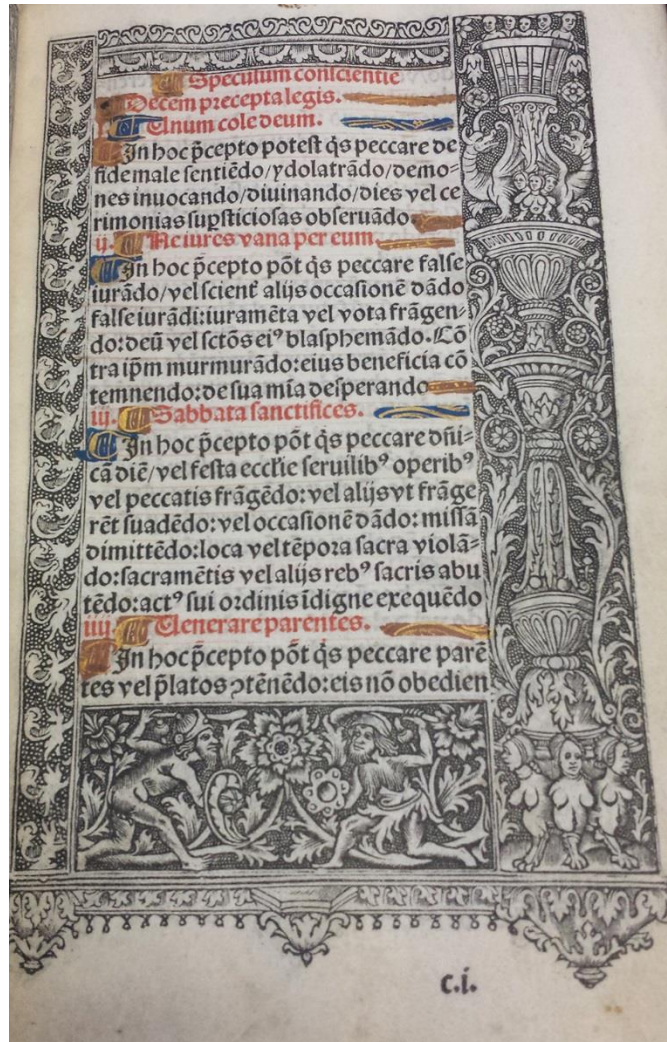 Speculum conscientie
Decem precepta legis.
i. Unum cole deum.
In hoc p̃cepto potest q̇s peccare de
fide male sentiẽdo/ydolatrãdo/demo-
nes inuocando/diuinando/dies vel ce
rimonias suꝑsticiosas obseruãdo
ij. Ne iures vana per eum.
In hoc p̃cepto põt q̇s peccare false
iurãdo/vel scienť alijs occasionẽ dãdo
false iurãdi:iuramẽta vel vota frãgen-
do:deũ vel sctõs eiꝰ blasphemãdo.Cõ
tra ip̃m murmurãdo:eius beneficia cõ
temnendo:de sua mĩa desperando
iij. Sabbata sanctifices.
In hoc p̃cepto põt q̇s peccare dñi-
cã diẽ/vel festa eccłie seruilibꝰ operibꝰ
vel peccatis frãgẽdo:vel alijs vt frãge
rẽt suadẽdo:vel occasionẽ dãdo:missã
dimittẽdo:loca vel tẽpora sacra violã-
do:sacramẽtis vel alijs rebꝰ sacris abu
tẽdo:actꝰ sui ordinis ĩdigne exequẽdo
iiij. Uenerare parentes.
In hoc p̃cepto põt q̇s peccare parẽ
tes vel p̃latos ꝯtẽnẽdo:eis nõ obedien
c.i.